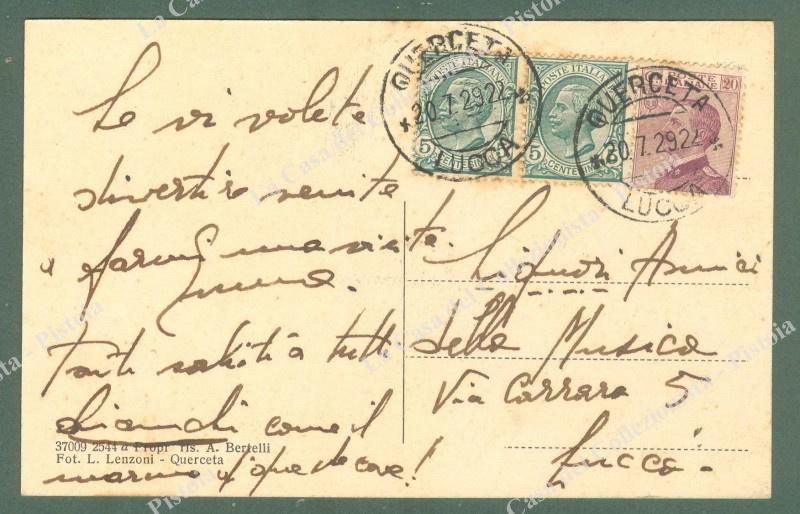 QUERCETA
20.7.29 22
LUCCA
QUERCETA
20.7.29 22
LUCCA
POSTE ITALIANE
5 CENTESIMI
POSTE ITALIANE
5 CENTESIMI
POSTE ITALIANE 20
Se vi volete
divertire venite
a farmi una visita.
Tanti saluti a tutti
bianchi come il
marmo d'queste cave!
Signori Amici
della Musica
Via Carrara 5
Lucca.
37009 2544 a Propr ris. A. Bertelli
Fot. L. Lenzoni - Querceta
La Casa del Collezionista - Pistoia